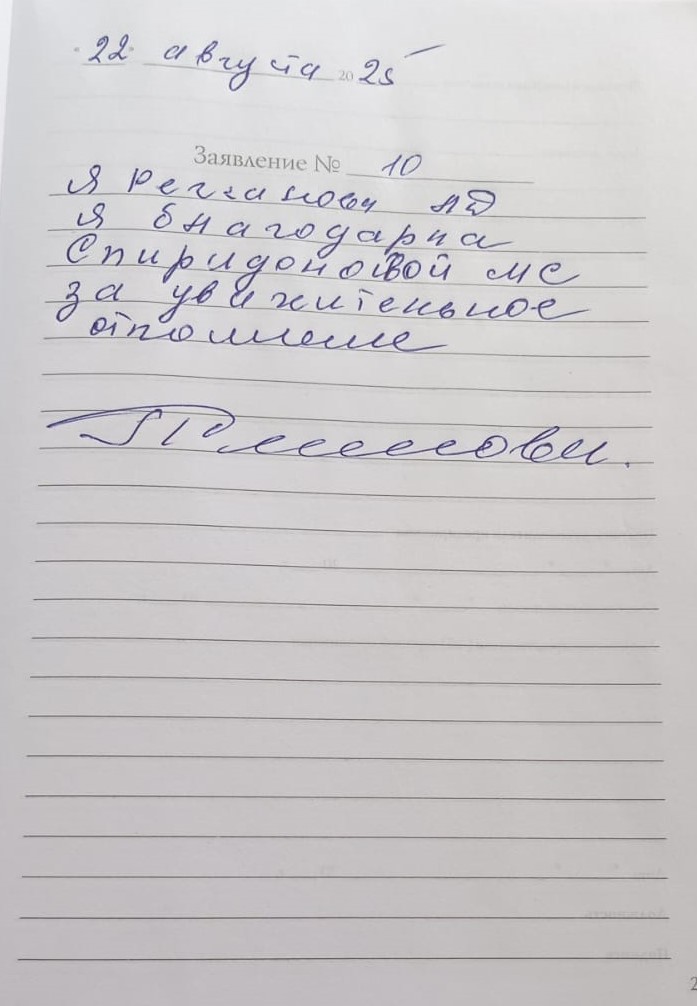 "22" августа 2025
Заявление № 10
Я НД
Я благодарна
Спиридоновой МС
за увижительное
отношение
2